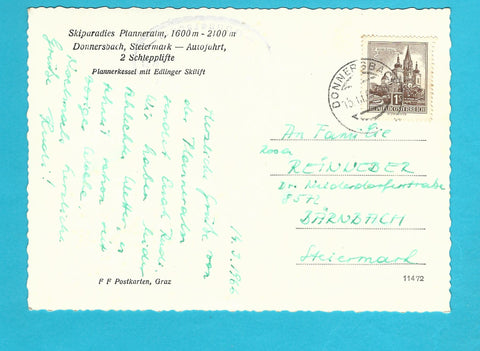 Skiparadies Planneralm, 1600 m - 2100 m
Donnersbach, Steiermark — Autofahrt,
2 Schlepplifte
Plannerkessel mit Edlinger Skilift
14. 3. 1966
Herzliche Grüße von
der Planneralm
sendet Euch Rudi.
Wir haben leider
schlechtes Wetter, es
schneit schon seit
voriger Woche.
Nochmals herzliche
Grüße Rudi!
F F Postkarten, Graz
DONNERSBACH
1
An Familie
Rosa
REINWEBER
Dr. Niederdorferstraße
8572
BÄRNBACH
Steiermark
11472